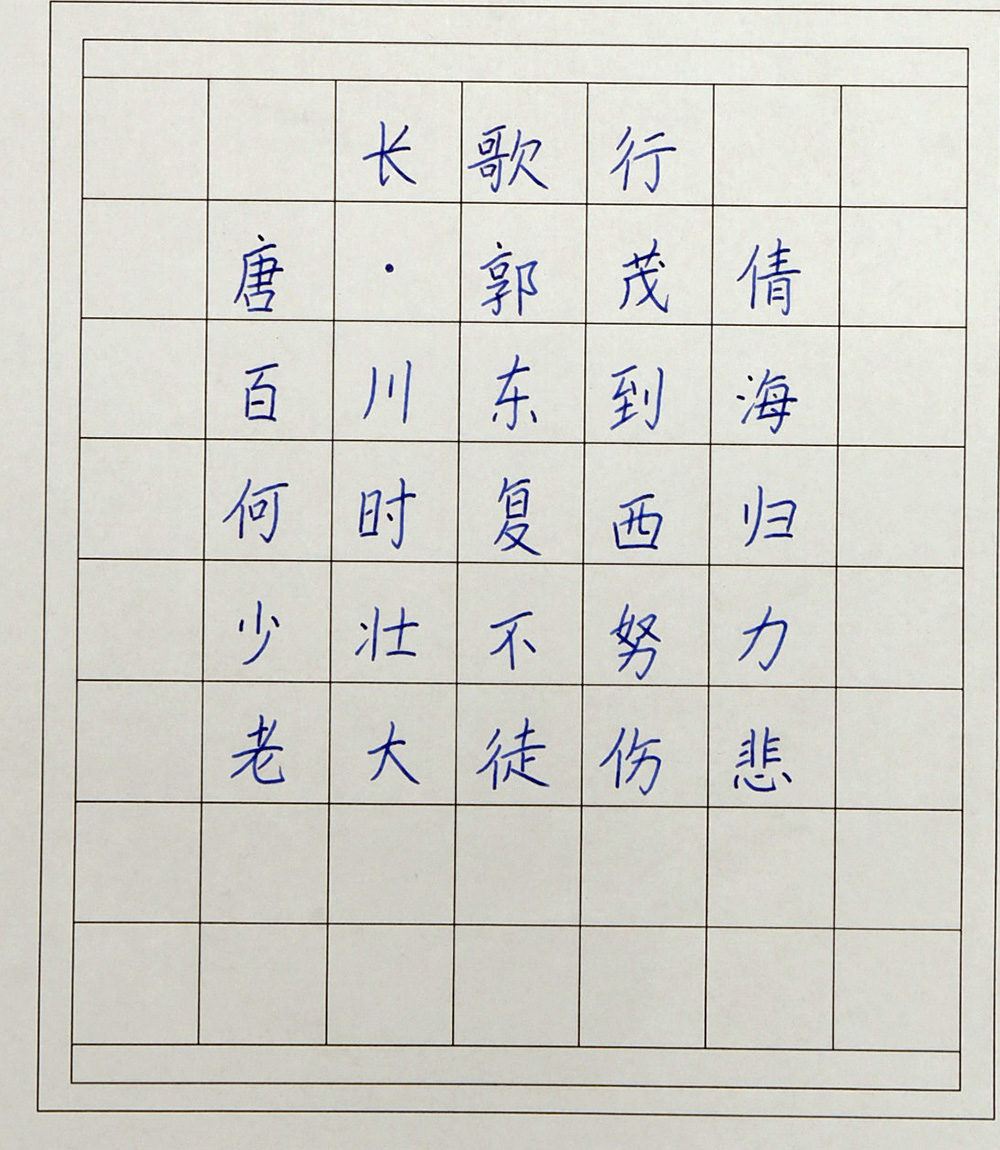 长歌行
唐·郭茂倩
百川东到海
何时复西归
少壮不努力
老大徒伤悲